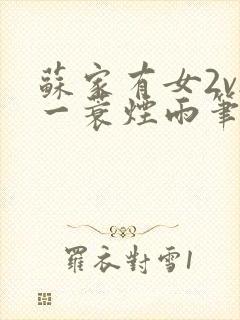 蘇家有女2v
一蓑煙雨筆
羅衣對雪1